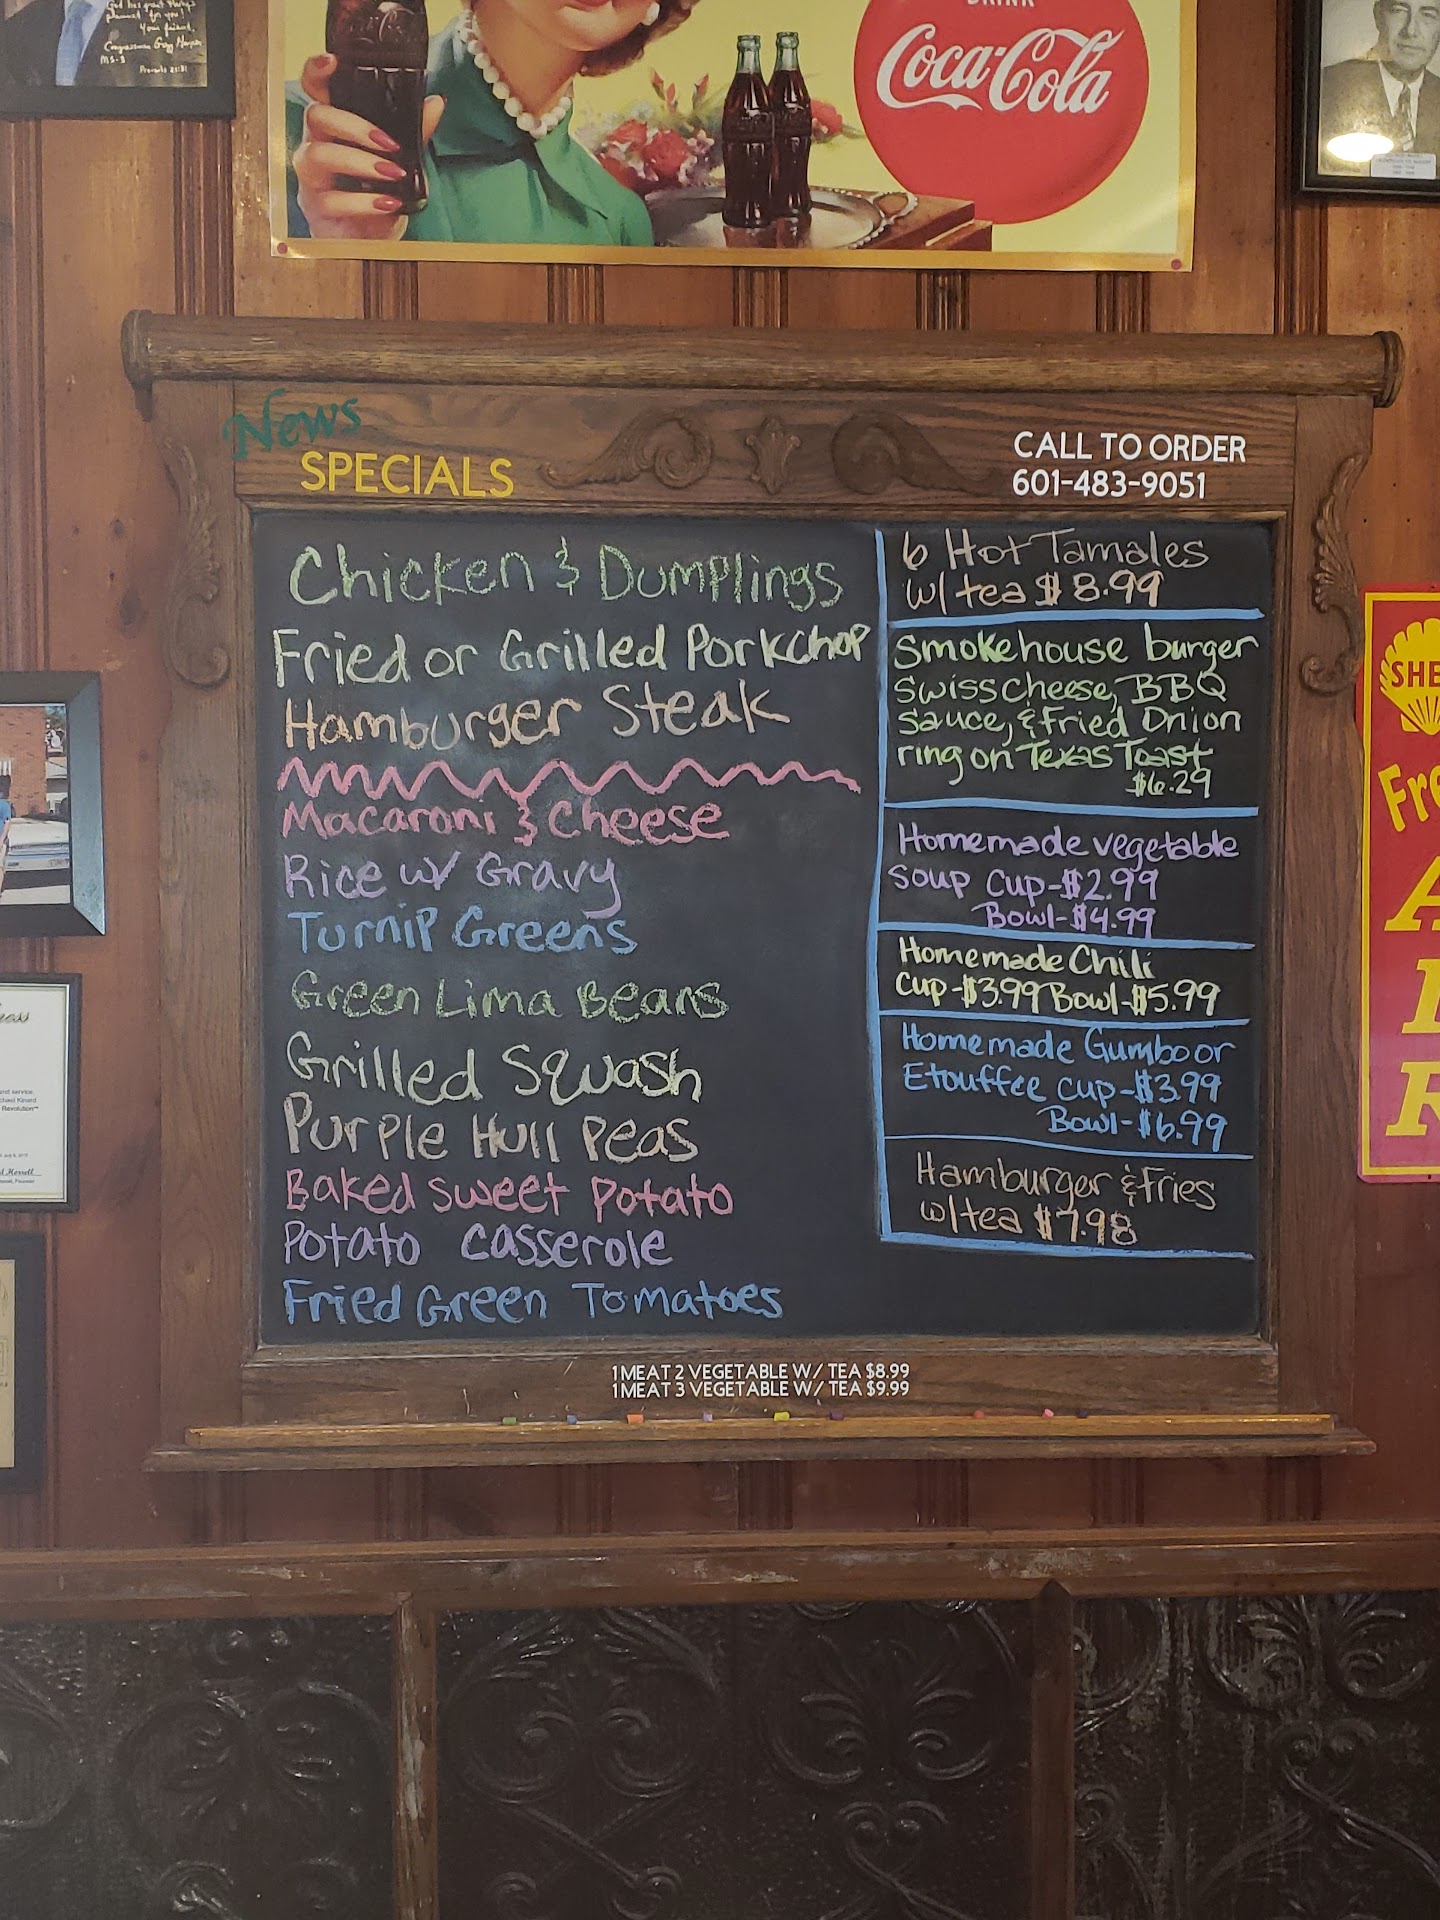 God has great things
planned for you!
Your friend,
Congressman Gregg Harper
MS-3
Proverbs 21:31
DRINK
Coca-Cola
News
SPECIALS
CALL TO ORDER
601-483-9051
Chicken & Dumplings
Fried or Grilled Porkchop
Hamburger Steak
Macaroni & Cheese
Rice w/ Gravy
Turnip Greens
Green Lima Beans
Grilled Squash
Purple Hull Peas
Baked sweet potato
Potato casserole
Fried Green Tomatoes
6 Hot Tamales
w/ tea $8.99
Smokehouse burger
Swiss cheese, BBQ
Sauce, & Fried Onion
ring on Texas Toast
$6.29
Homemade vegetable
soup cup-$2.99
Bowl-$4.99
Homemade Chili
cup-$3.99 Bowl-$5.99
Homemade Gumbo or
Etouffee cup-$3.99
Bowl-$6.99
Hamburger & fries
w/tea $7.98
1 MEAT 2 VEGETABLE W/ TEA $8.99
1 MEAT 3 VEGETABLE W/ TEA $9.99
SHE
Fre
A
I
R